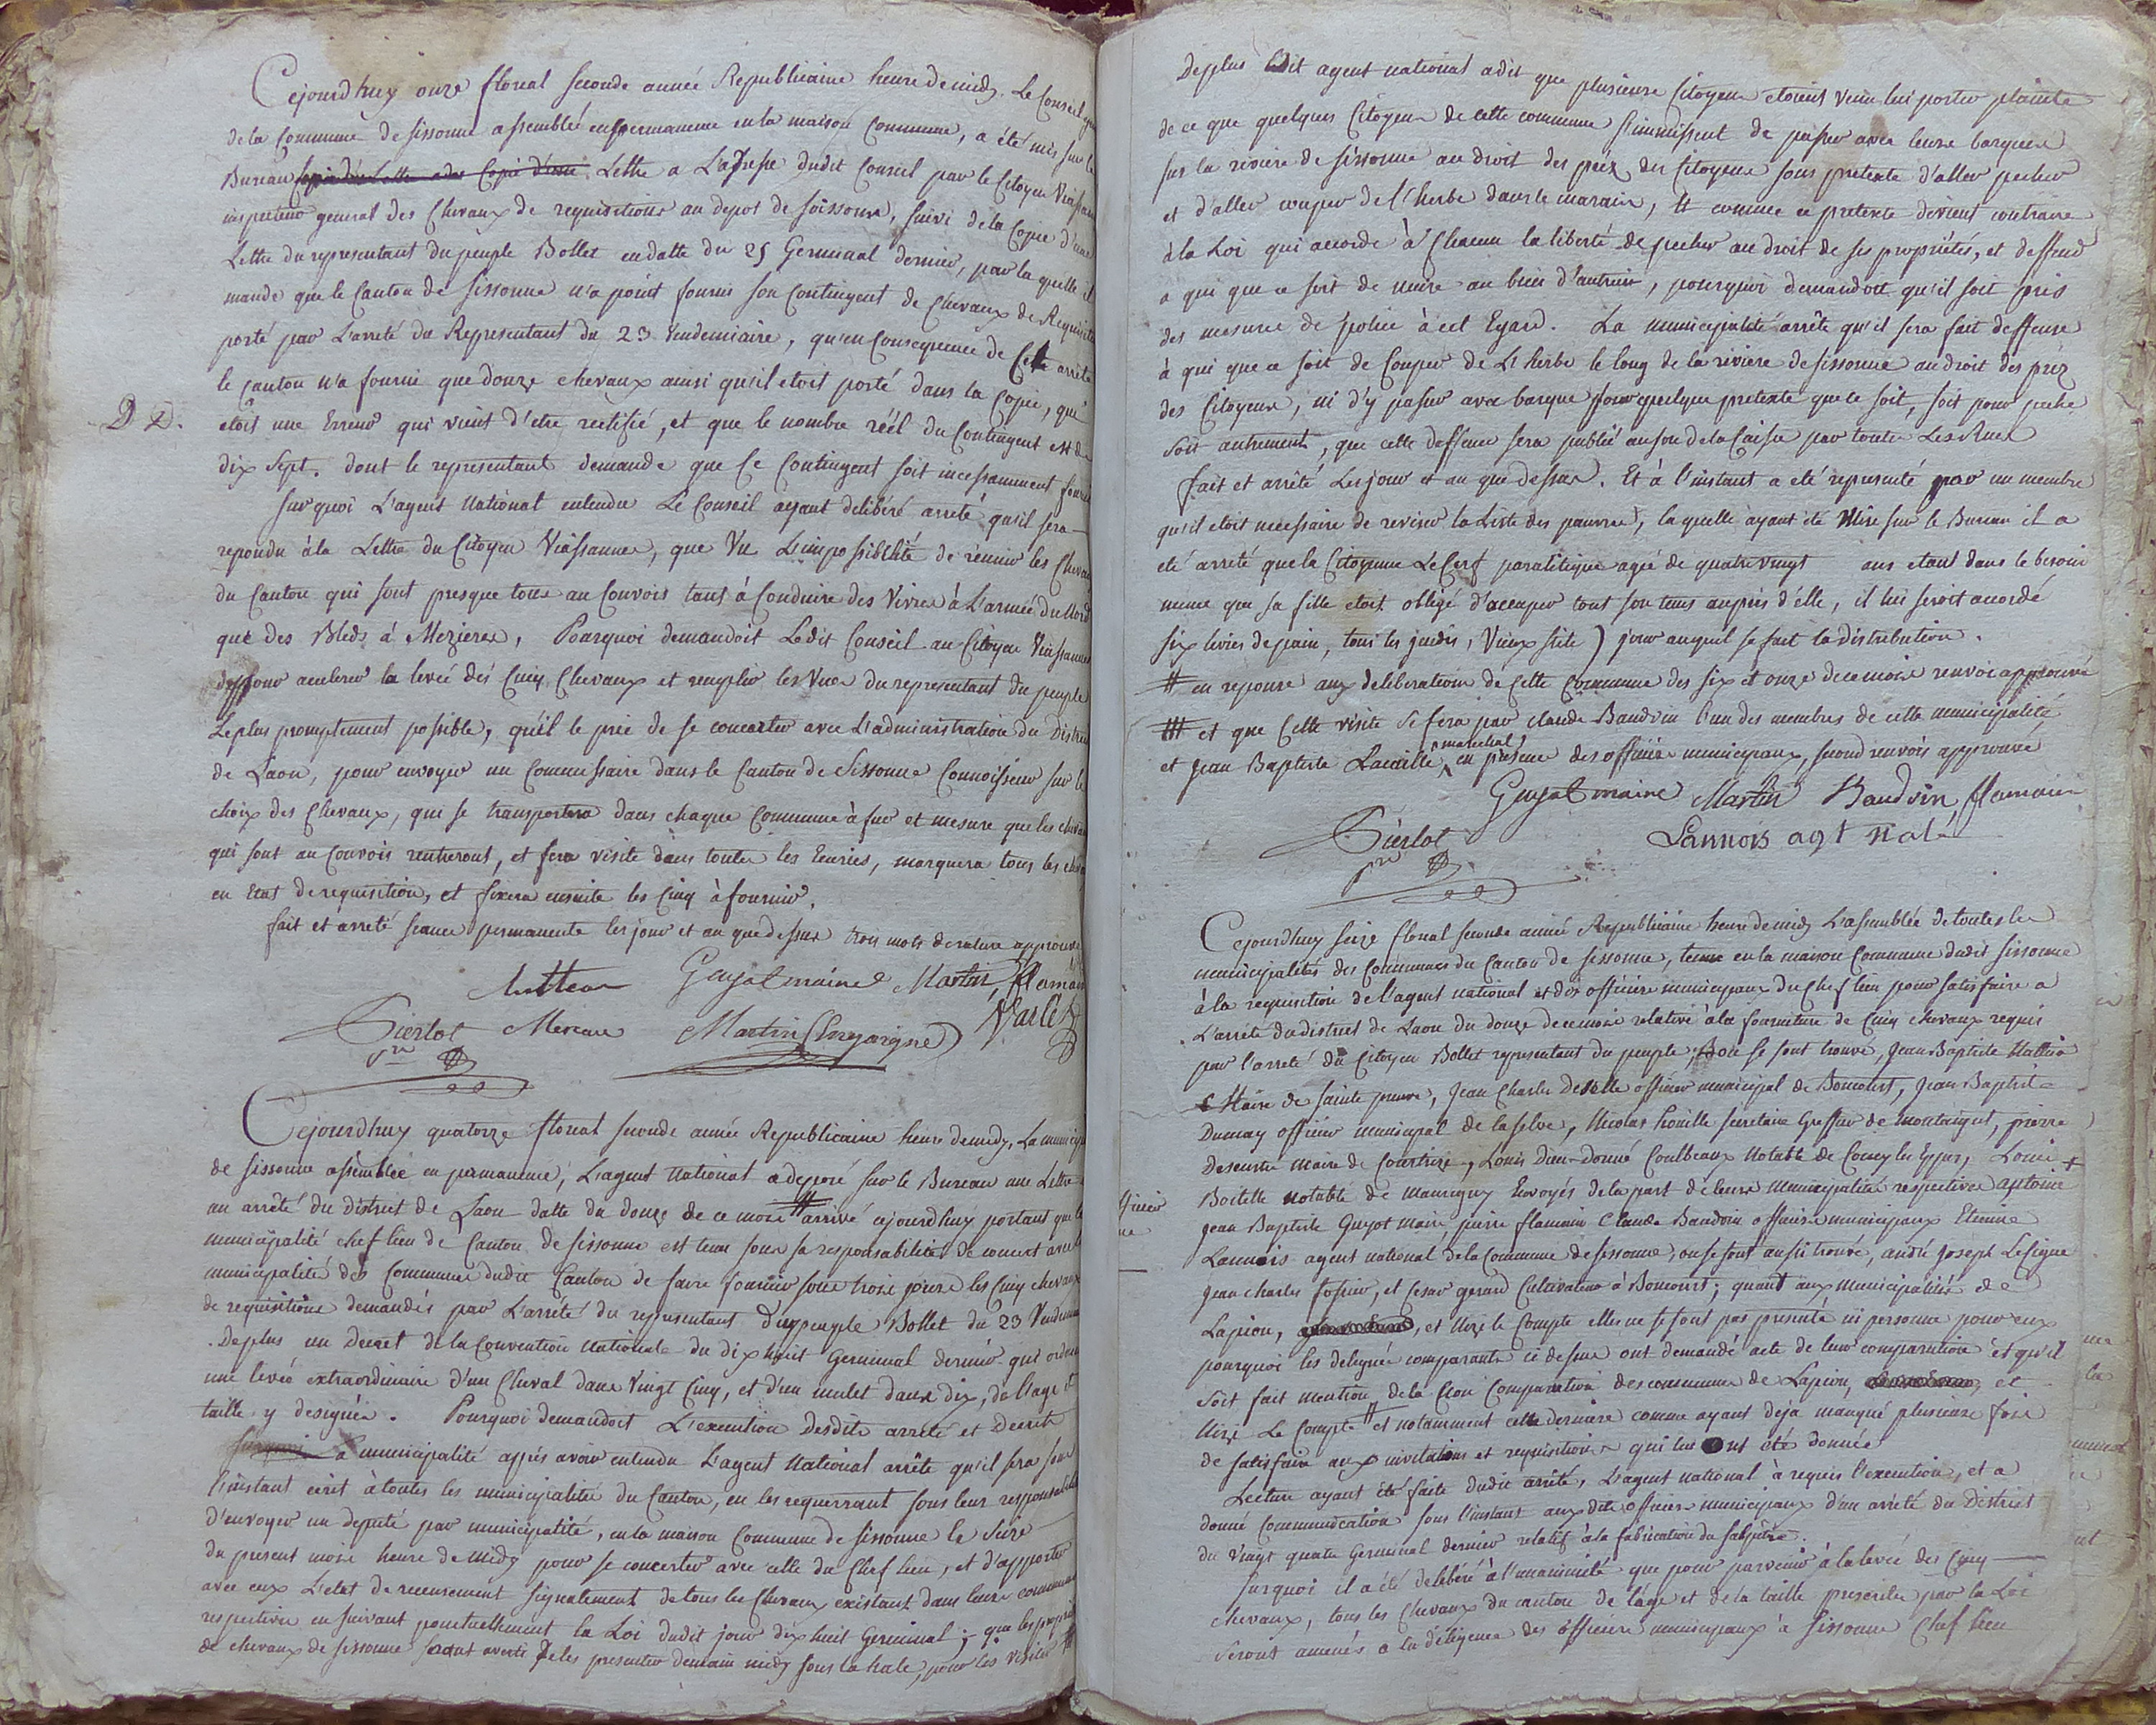 Cejourdhuy onze floreal seconde année Republicaine heure de midy. Le Conseil
de la Commune de Sissonne assemblée en permanence en la maison Commune, a été mis sur le
Bureau Lettre a L'adresse dudit Conseil par le Citoyen Viassanne
inspecteur general des Chevaux de requisitions au depot de Soissons, suivi de la Copie d'une
Lettre du representant du peuple Bollet en datte du 25 Germinal dernier, par la quelle il
mande que le Canton de Sissonne n'a point fournis son Contingent de Chevaux de Requisition
porté par L'arreté du Representant du 23 Vendemiaire, qu'en Consequence de Cette arrêté
le Canton n'a fourni que douze chevaux ainsi qu'il etoit porté dans la Copie, qui
D D. etoit une Erreur qui vient d'etre rectifié, et que le nombre réel du Contingent est de
dix Sept. dont le representant demande que Ce Contingent soit incessamment fourni
Sur quoi L'agent National entendu Le Conseil ayant delibéré arrete qu'il sera
repondu à la Lettre du Citoyen Viassanne, que Vu L'impossibilité de reunir les Chevaux
du Canton qui sont presque tous au Convois tant à Conduire des Vivres à L'armée du Nord
que des Bleds à Mezieres, Pourquoi demandoit Ledit Conseil au Citoyen Viassanne
pour accelerer la levée des Cinq Chevaux et remplir les Vues du representant du peuple
Le plus promptement possible, qu'il le prie de se concerter avec L'administration du District
de Laon, pour envoyer un Commissaire dans le Canton de Sissonne Connoisseur sur le
choix des Chevaux, qui se transportera dans chaque Commune à fur et mesure que les chevaux
qui sont au Convois rentreront, et fera visite dans toutes les Ecuries, marquera tous les chevaux
en Etat de requisition, et fixera ensuite les Cinq à fournir.
fait et arreté seance permanente les jour et an que dessus trois mots de rature approuvé
Guyot maire Martin flamain
Sierlot Mereau Martin Varlet
Cejourdhuy quatorze floreal seconde année Republicaine heure de midy, La municipalité
de Sissonne assemblée en permanence, L'agent National a deposé sur le Bureau une Lettre
un arrêté du district de Laon datte du douze de ce mois # arrivé cejourdhuy portant que la
municipalité chef lieu de Canton de Sissonne est tenu sous sa responsabilité de concert avec les
municipalité des Communes dudit Canton de faire fournir sous trois jours les Cinq chevaux
de requisitions demandés par L'arrêté du representant du peuple Bollet du 23 Vendemiaire
De plus un Decret de la Convention Nationale du dix huit Germinal dernier qui ordonne
une levée extraordinaire d'un Cheval dans Vingt Cinq, et d'un mulet dans dix, de l'age et
taille y designés. Pourquoi demandoit L'execution desdits arreté et Decrets
La municipalité après avoir entendu L'agent National arrête qu'il sera sous
l'instant ecrit à toutes les municipalités du Canton, en les requerrant sous leur responsabilité
d'envoyer un deputé par municipalité, en la maison Commune de Sissonne le Seize
du present mois heure de Midy pour se concerter avec celle du Chef lieu, et d'apporter
avec eux L'etat de recensement signalement de tous les Chevaux existant dans leurs communes
respective en suivant ponctuellement la Loi dudit jour dix huit Germinal; que les propriétaires
de chevaux de Sissonne seront avertis de les presenter demain midy sous la hale, pour les visiter
De plus Ledit agent national a dit que plusieurs Citoyens etoient venu lui porter plainte
de ce que quelques Citoyens de cette commune s'immissent de passer avec leurs barques
sur la riviere de Sissonne au droit des prez des Citoyens sous pretexte d'aller pecher
et d'aller couper de l'herbe dans le marais, et comme ce pretexte devient contraire
à la Loi qui accorde à Chacun la liberté de pecher au droit de ses propriétés, et deffend
a qui que ce soit de nuire au bien d'autruit, pourquoi demandoit qu'il soit pris
des mesures de police à cet Egard. La municipalité arrête qu'il sera fait deffense
à qui que ce soit de Couper de L'herbe le long de la riviere de Sissonne au droit des prez
des Citoyens, ni d'y passer avec barque sous quelque pretexte que ce soit, soit pour peche
soit autrement, que cette deffense sera publié au son de la Caisse par toutes Les Rues
fait et arrêté Les jour et an que dessus. Et à l'instant a été representé par un membre
qu'il etoit necessaire de reviser la Liste des pauvres, la quelle ayant été Mise sur le Bureau il a
eté arreté que la Citoyenne Le Cerf paralitique agée de quatre vingt ans etant dans le besoin
meme que sa fille etoit obligé d'occuper tout son tems auprès d'elle, il lui seroit accordé
six livres de pain, tous les jeudis (Vieux stile) jour auquel se fait la distribution.
# en reponse aux deliberations de Cette Commune des six et onze de ce mois renvoi approuvé
## et que Cette visite se fera par claude Baudoin l'un des membres de cette municipalité
et Jean Baptiste Lacaille, marechal, en presence des officiers municipaux, second renvois approuvé
Guyot maire Martin Baudoin flamain
Sierlot Lannois agt Nal
Cejourdhuy seize floreal seconde année Republicaine heure de midy L'assemblée de toutes les
municipalités des Communes du Canton de Sissonne, tenue en la maison Commune dudit Sissonne
à la requisition de l'agent national et des officiers municipaux du Chef lieu pour satisfaire a
L'arrêté du district de Laon du douze de ce mois relative à la fourniture de Cinq chevaux requis
par l'arreté du Citoyen Bollet representant du peuple, Où se sont trouvé, Jean Baptiste
Maire de Sainte preuve, Jean Charles officier municipal de Boncourt, Jean Baptiste
Dumay officier municipal de laselve, Nicolas secretaire Greffier de Montaigut, pierre
maire de Courtrizy, Louis Dieu-donné Coulbeaux Notable de Coucy les Eppes, Louis
Boitelle notable de Mauregny Envoyés de la part de leurs municipalités respective
Jean Baptiste Guyot Maire, pierre flamain Claude Baudoin officiers municipaux Etienne
Lannois agent national de la Commune de Sissonne, ou se sont aussi trouvé, andré Joseph
Jean charles fossier, et Cesar gerard Cultivateurs à Boncourt; quant aux municipalités de
Lapion, et Nizy le Compte elles ne se sont pas presenté ni personne pour eux
pourquoi les delegués comparants ci dessus ont demandé acte de leur comparution et qu'il
soit fait mention de la Non Comparution des communes de Lapion, et
Nizy Le Compte # et notamment cette derniere comme ayant deja manqué plusieurs fois
de satisfaire aux invitations et requisitions qui lui ont été données
Lecture ayant été faite dudit arrêté, L'agent national à requis l'execution, et a
donné Communication sous l'instant aux dits officiers municipaux d'un arrêté du District
du Vingt quatre Germinal dernier relatif à la fabrication du salpetre.
Surquoi il a été delibéré à l'unanimité que pour parvenir à la levée des Cinq
chevaux, tous les Chevaux du canton de l'age et de la taille prescrite par la Loi
seront amenés a la diligence des officiers municipaux à Sissonne Chef lieu